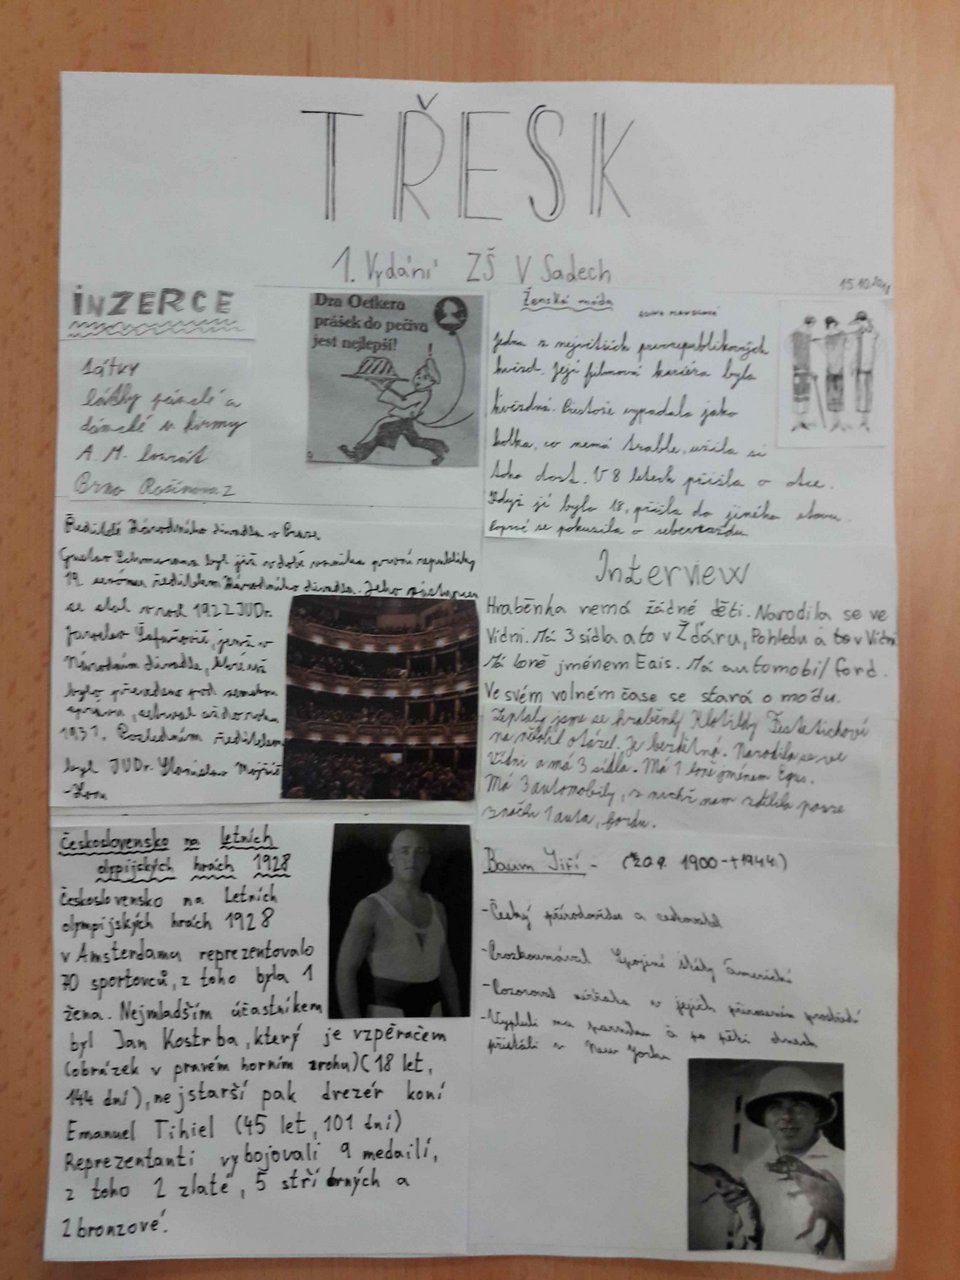 TŘESK
1. Vydání ZŠ V Sadech
15.10.
INZERCE
Látky
látky pánské a
dámské v
A. M.
Brno 2
Dra Oetkera
prášek do pečiva
jest nejlepší!
Ženská móda
Jedna z největších prvorepublikových
hvězd. Její filmová kariéra byla
hvězdná. Přestože vypadala jako
holka, co nemá trable, užila si
toho dost. V 8 letech přišla o otce.
Když jí bylo 18, přišla do jiného stavu.
Poprvé se pokusila o sebevraždu
Ředitelé Národního divadla v Praze
Gustav Schmoranz byl již v době vzniku první republiky
19. ředitelem Národního divadla. Jeho zástupcem
se stal v roce 1922 JUDr.
Jaroslav Šafařovič, jenž v
Národním divadle, které už
bylo převedeno pod zemskou
správu, setrval až do roku
1931. Posledním ředitelem
byl JUDr. Stanislav Mojžíš
-Lom
Interview
Hraběnka nemá žádné děti. Narodila se ve
Vídni. Má 3 sídla a to v Žďáru, Pohledu a to v Vídni
Má koně jménem Eais. Má automobil ford.
Ve svém volném čase se stará o módu.
Zeptaly jsme se hraběnky Klotildy
na několik otázek. Je bezdětná. Narodila se ve
Vídni a má 3 sídla. Má 1 koně jménem
Má 3 automobily, z nichž nám sdělila pouze
značku 1 auta, fordu.
Československo na letních
olypijských hrách 1928
Československo na Letních
olympijských hrách 1928
v Amsterdamu reprezentovalo
70 sportovců, z toho byla 1
žena. Nejmladším účastníkem
byl Jan Kostrba, který je vzpěračem
(obrázek v pravém horním rohu) (18 let,
144 dní), nejstarší pak drezér koní
Emanuel Tihiel (45 let, 101 dní)
Reprezentanti vybojovali 9 medailí,
z toho 2 zlaté, 5 stříbrných a
2 bronzové.
Baum Jiří - (20.9. 1900 - †1944.)
-Český přírodovědec a cestovatel
-Prozkoumával Spojené státy Americké
-Pozoroval zvířata v jejich přirozeném prostředí
-Vypluli na parníku a po pěti dnech
přistáli v New Yorku